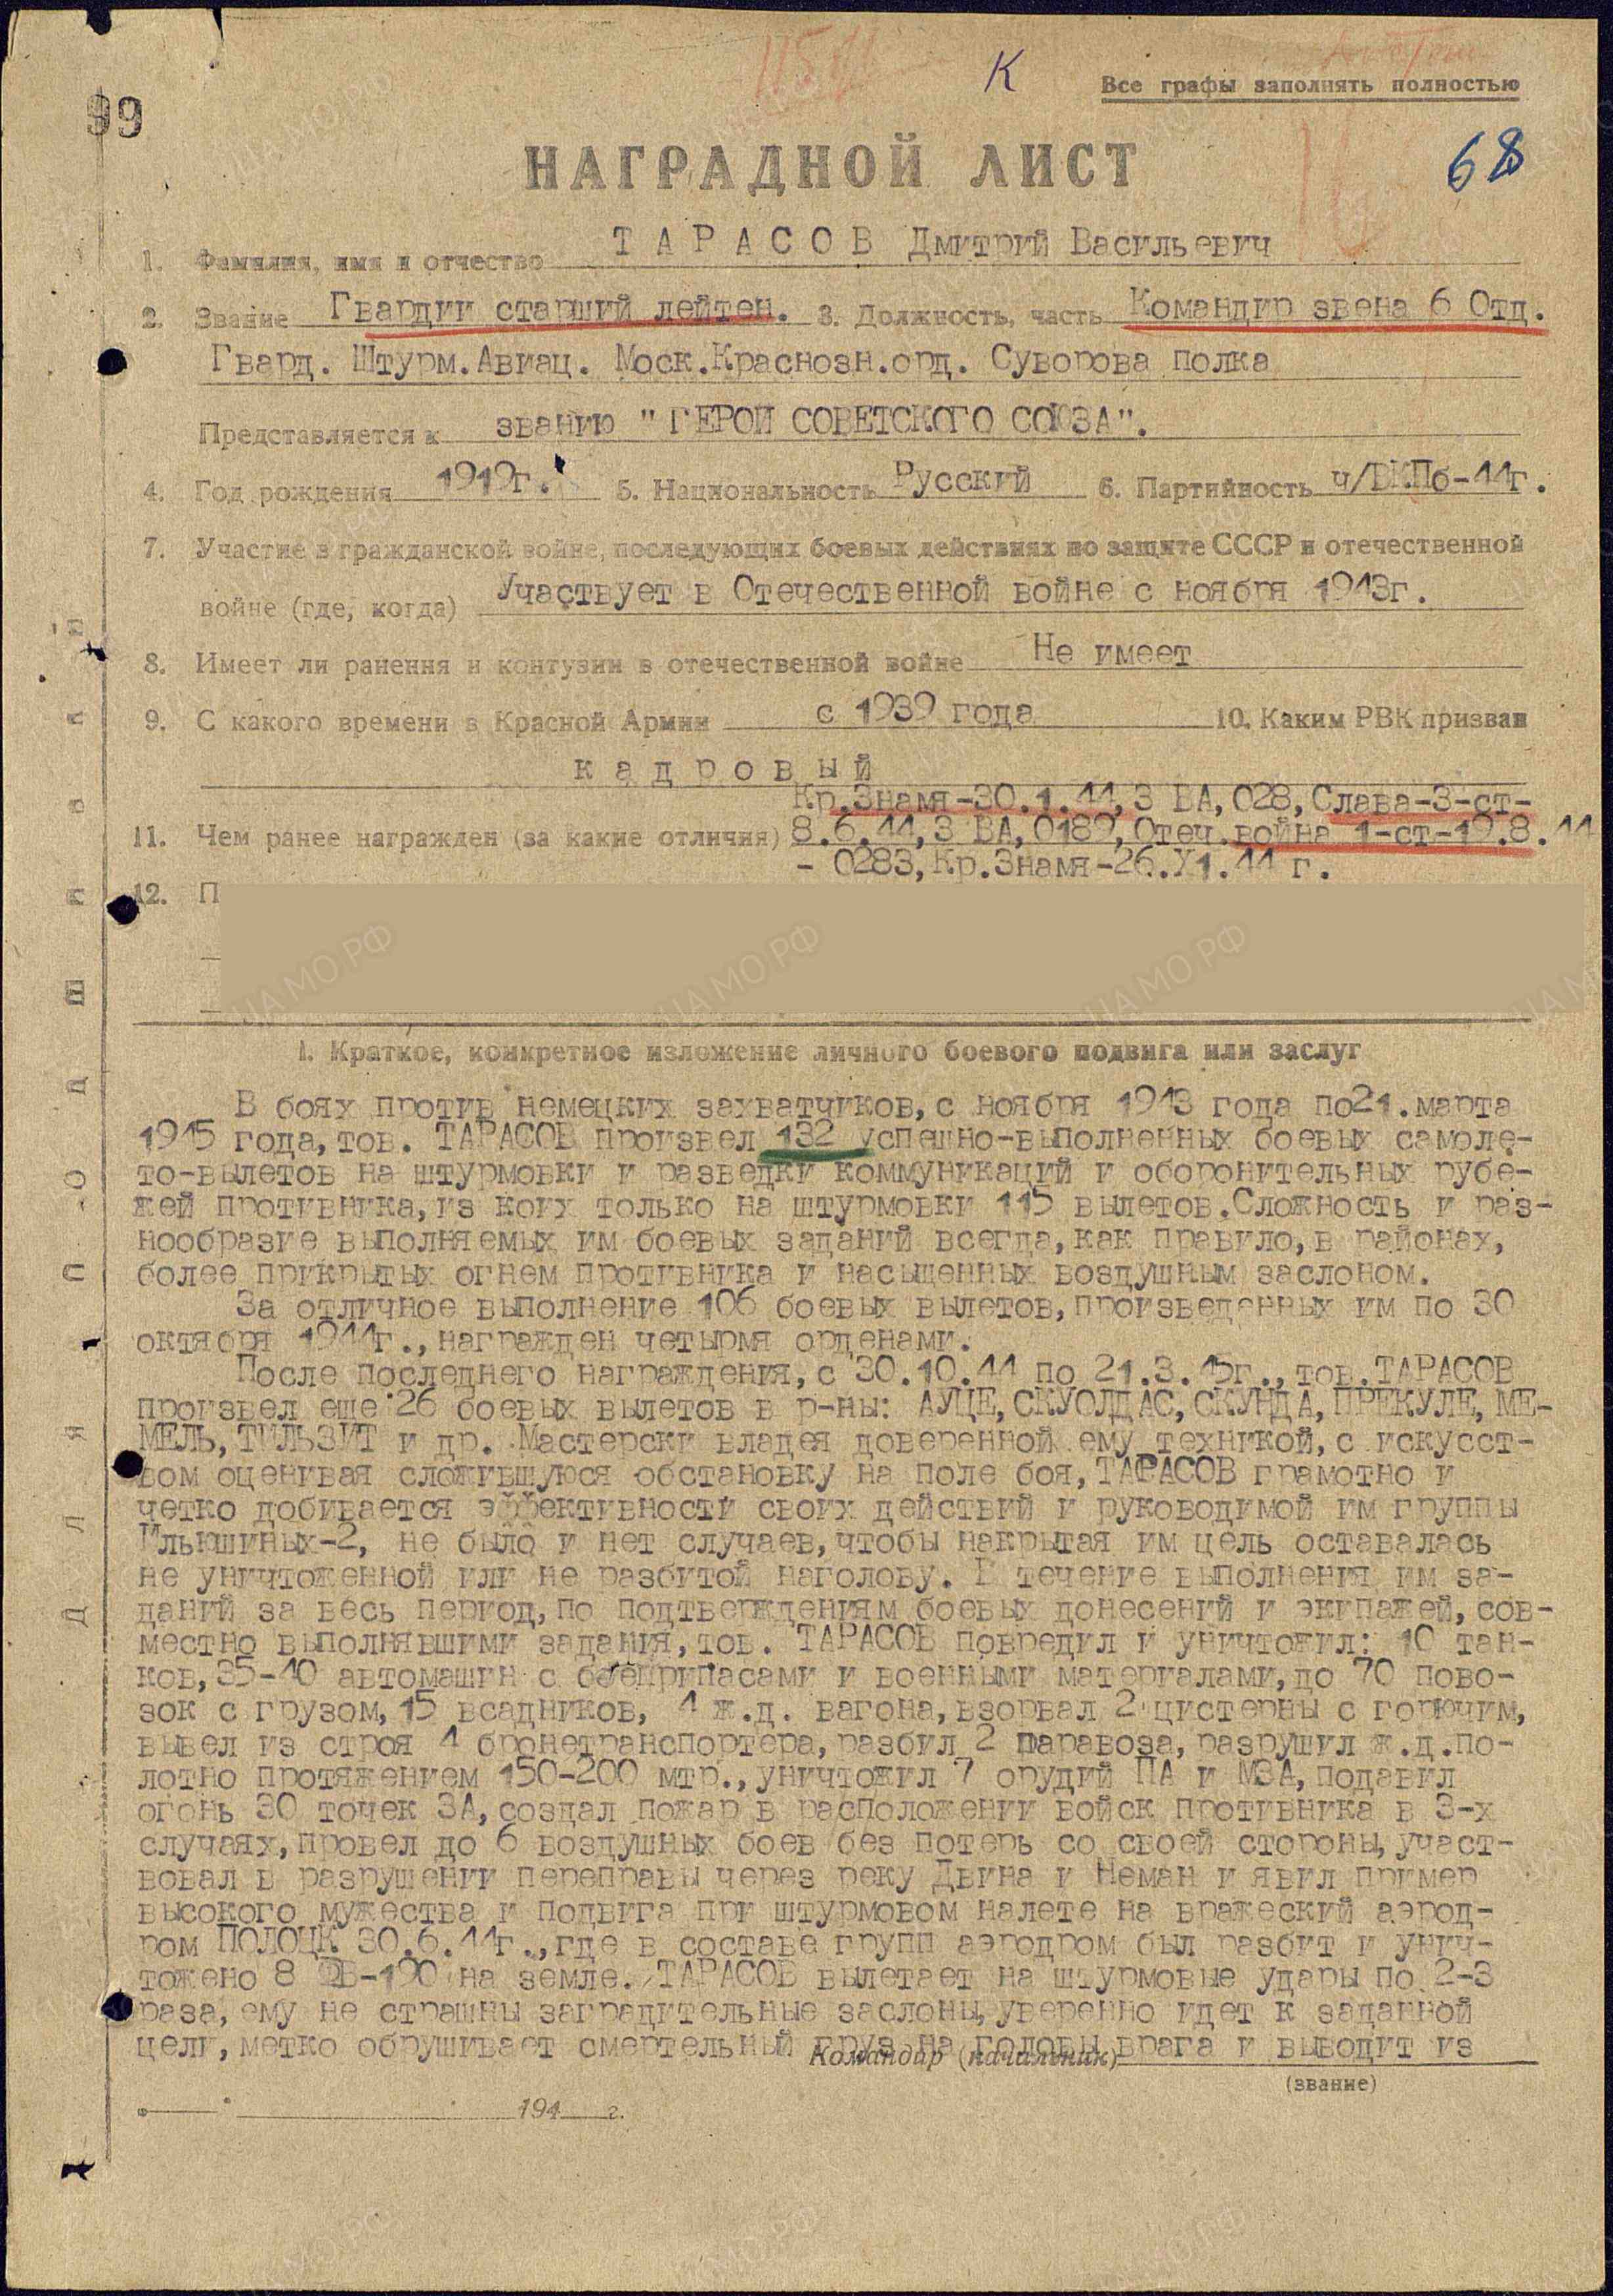 К
Все графы заполнять полностью
99
68
НАГРАДНОЙ ЛИСТ
1. Фамилия, имя и отчество ТАРАСОВ Дмитрий Васильевич
2. Звание Гвардии старший лейтен. 3. Должность, часть Командир звена 6 Отд.
Гвард. Штурм.Авиац. Моск.Краснозн.орд. Суворова полка
Представляется к званию "ГЕРОЙ СОВЕТСКОГО СОЮЗА".
4. Год рождения 1919г. 5. Национальность Русский 6. Партийность ч/ВКПб-44г.
7. Участие в гражданской войне, последующих боевых действиях по защите СССР и отечественной
войне (где, когда) Участвует в Отечественной войне с ноября 1943г.
8. Имеет ли ранения и контузии в отечественной войне Не имеет
9. С какого времени в Красной Армии с 1939 года 10. Каким РВК призван
кадровый
Кр.Знамя-30.1.44,3 ВА,028,Слава-3-ст-
11. Чем ранее награжден (за какие отличия) 8.6.44,3 ВА,0189,Отеч.война 1-ст-19.8.44
- 0283,Кр.Знамя-26.X1.44 г.
12. П
Для подшивки
1. Краткое, конкретное изложение личного боевого подвига или заслуг
В боях против немецких захватчиков,с ноября 1943 года по21.марта
1945 года,тов. ТАРАСОВ произвел 132 успешно-выполненных боевых самоле-
то-вылетов на штурмовки и разведки коммуникаций и оборонительных рубе-
жей противника,из коих только на штурмовки 115 вылетов.Сложность и раз-
нообразие выполняемых им боевых заданий всегда,как правило,в районах,
более прикрытых огнем противника и насыщенных воздушным заслоном.
За отличное выполнение 106 боевых вылетов,произведенных им по 30
октября 1944г.,награжден четырмя орденами.
После последнего награждения,с 30.10.44 по 21.3.45г.,тов.ТАРАСОВ
произвел еще 26 боевых вылетов в р-ны: АУЦЕ,СКУОДАС,СКУНДА,ПРЕКУЛЕ,МЕ-
МЕЛЬ,ТИЛЬЗИТ и др. Мастерски владея доверенной ему техникой,с искусст-
вом оценивая сложившуюся обстановку на поле боя,ТАРАСОВ грамотно и
четко добивается эффективности своих действий и руководимой им группы
Ильюшиных-2, не было и нет случаев,чтобы накрытая им цель оставалась
не уничтоженной или не разбитой наголову. В течение выполнения им за-
даний за весь период,по подтверждениям боевых донесений и экипажей,сов-
местно выполнявшими задания,тов. ТАРАСОВ повредил и уничтожил: 10 тан-
ков,35-40 автомашин с боеприпасами и военными материалами,до 70 пово-
зок с грузом,15 всадников, 4 ж.д. вагона,взорвал 2 цистерны с горючим,
вывел из строя 4 бронетранспортера,разбил 2 паравоза,разрушил ж.д.по-
лотно протяжением 150-200 мтр.,уничтожил 7 орудий ПА и МЗА,подавил
огонь 30 точек ЗА,создал пожар в расположении войск противника в 3-х
случаях,провел до 6 воздушных боев без потерь со своей стороны,участ-
вовал в разрушении переправы через реку Двина и Неман и явил пример
высокого мужества и подвига при штурмовом налете на вражеский аэрод-
ром ПОЛОЦК 30.6.44г.,где в составе групп аэродром был разбит и унич-
тожено 8 ФВ-190 на земле. ТАРАСОВ вылетает на штурмовые удары по 2-3
раза,ему не страшны заградительные заслоны,уверенно идет к заданной
цели,метко обрушивает смертельный груз на головы врага и выводит из
Командир (начальник)
(звание)
194 г.